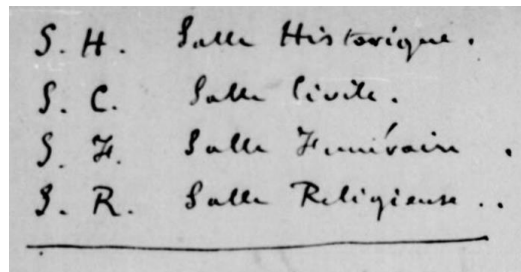 S. H. Salle Historique.
S. C. Salle Civile.
S. F. Salle Funéraire.
S. R. Salle Religieuse..